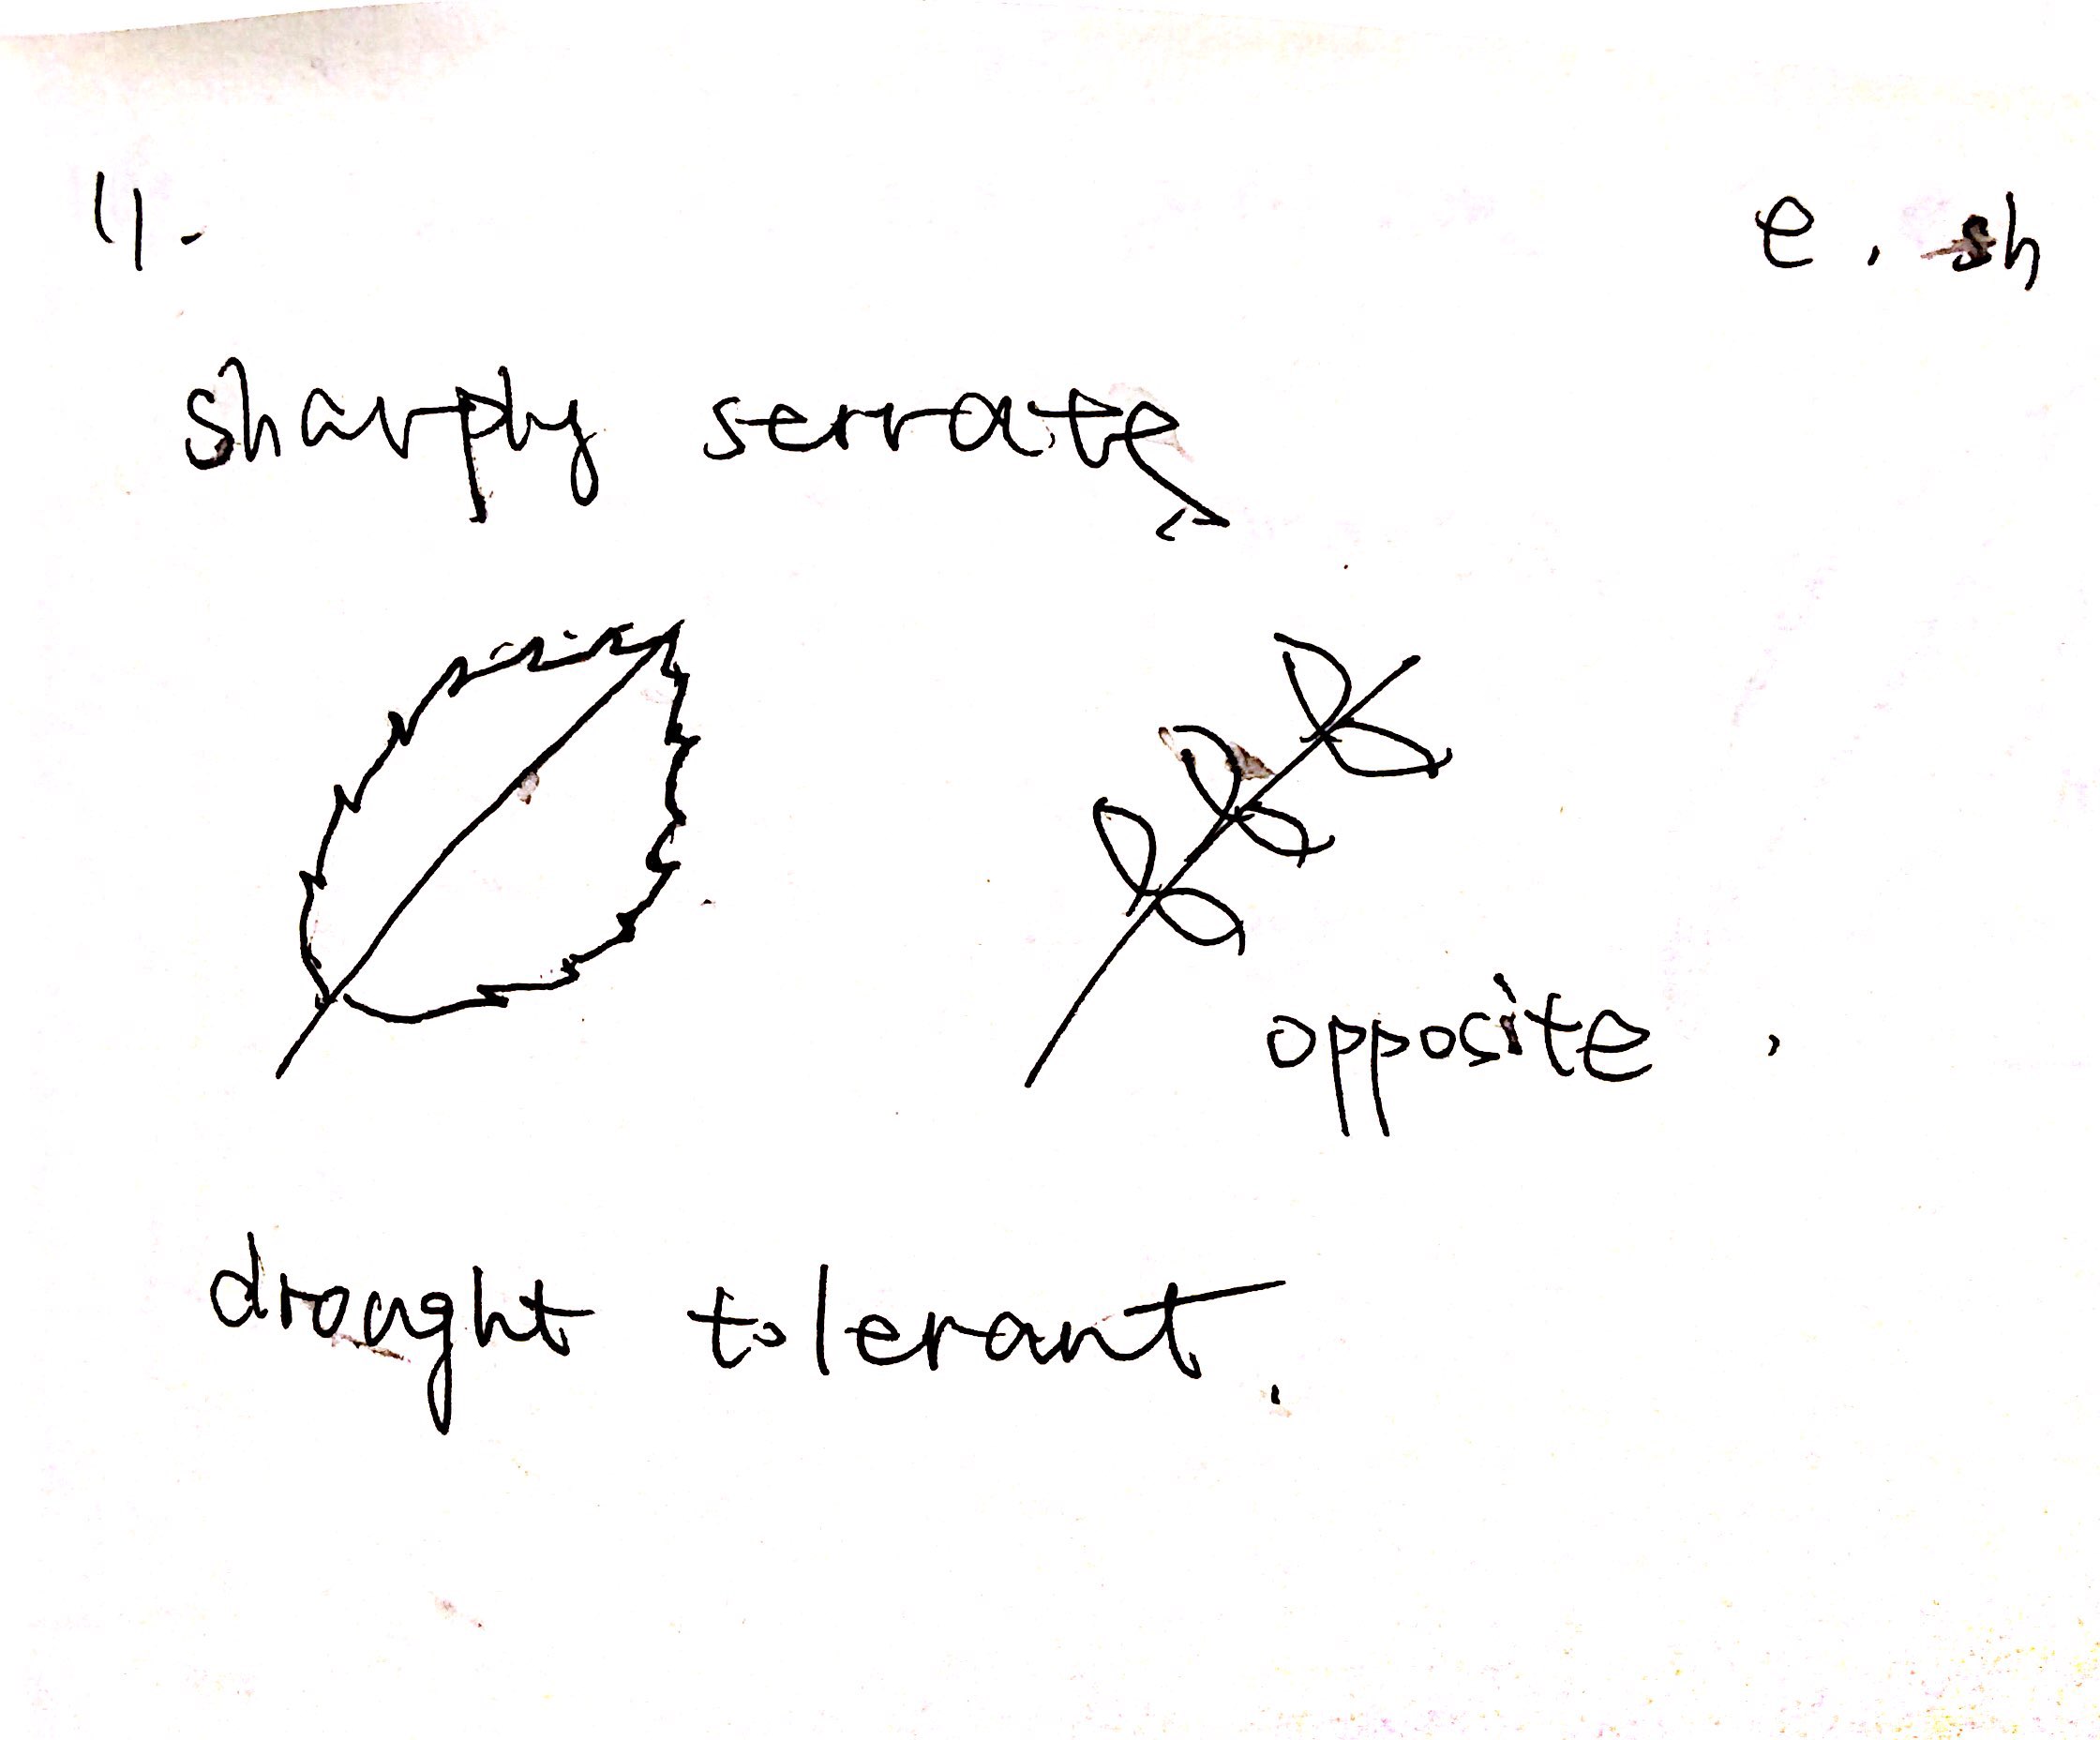 11.
e, sh
sharply serrate,
opposite,
drought tolerant.